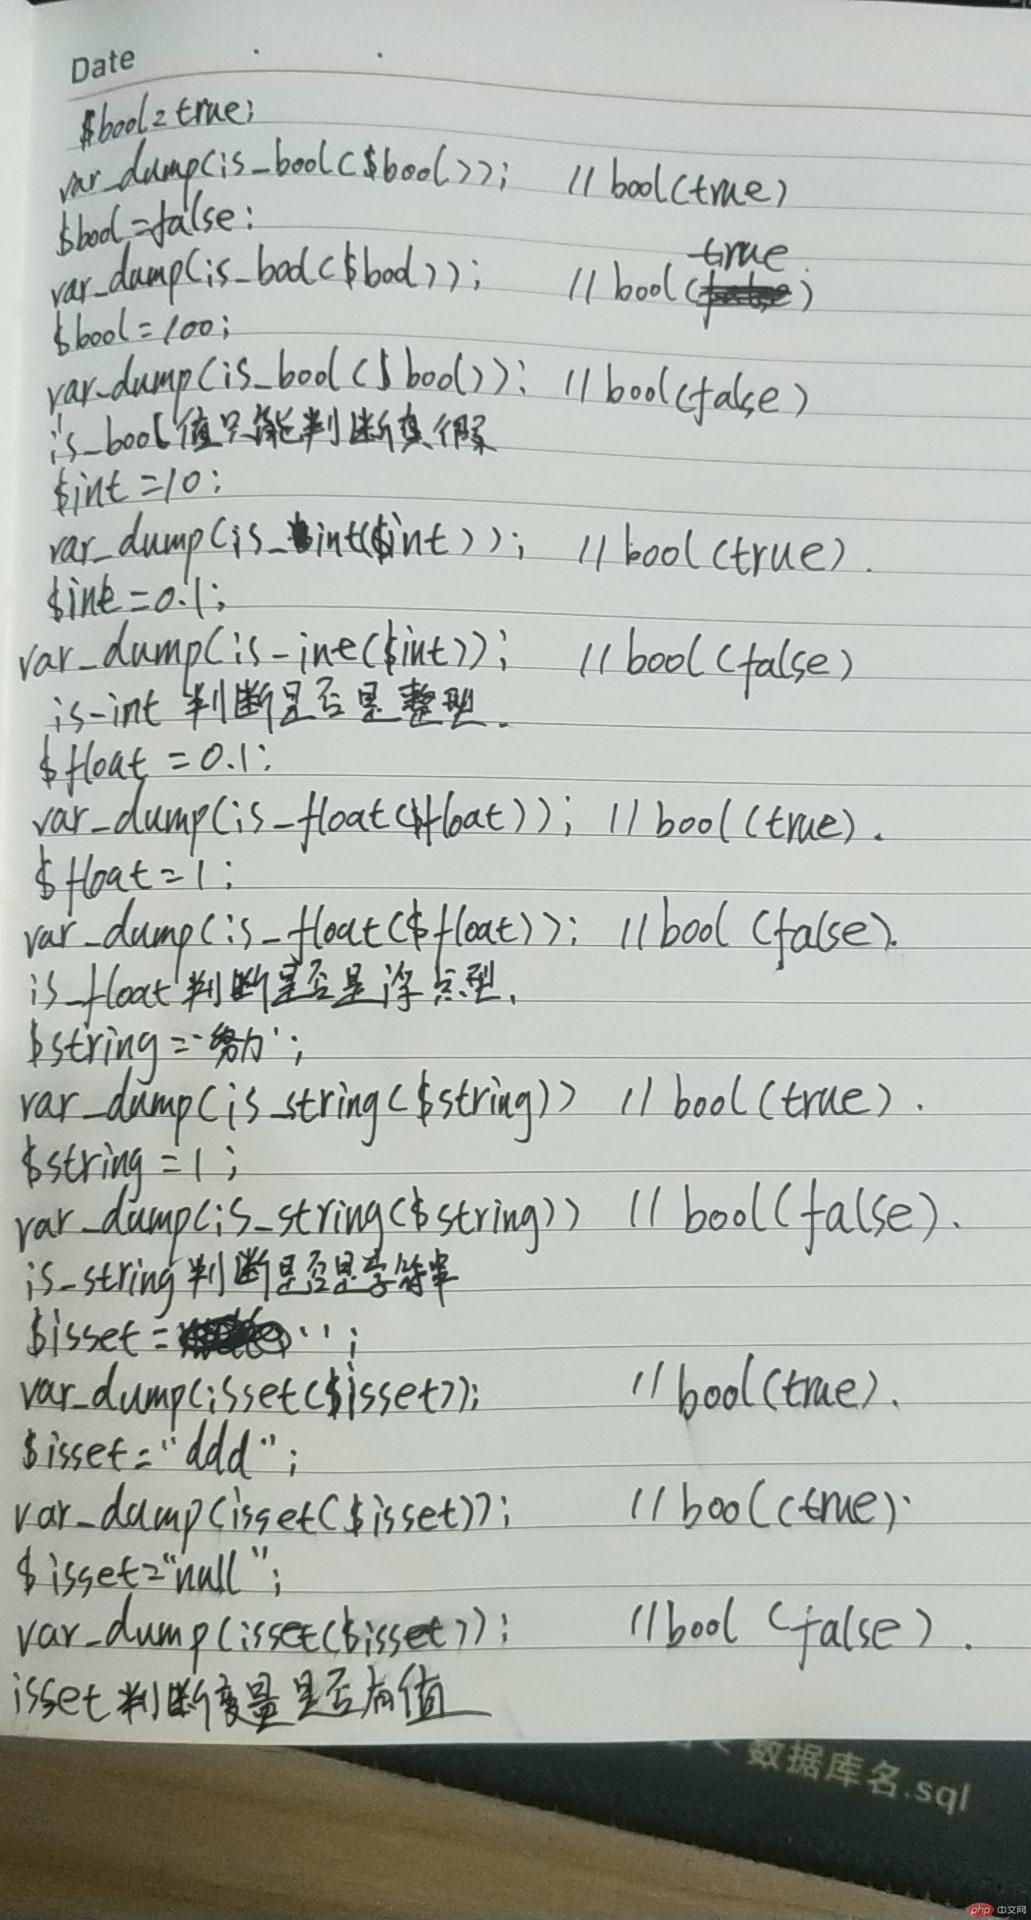 Date
$bool=true;
var_dump(is_bool($bool)); //bool(true)
$bool=false;
true
var_dump(is_bool($bool)); //bool( )
$bool=100;
var_dump(is_bool($bool)); //bool(false)
is_bool值只能判断真假
$int=10;
var_dump(is_int($int)); //bool(true).
$int=0.1;
var_dump(is-int($int)); //bool(false)
is-int判断是否是整型.
$float=0.1;
var_dump(is_float($float)); //bool(true).
$float=1;
var_dump(is_float($float)); //bool(false).
is_float判断是否是浮点型.
$string='努力';
var_dump(is_string($string)) //bool(true).
$string=1;
var_dump(is_string($string)) //bool(false).
is_string判断是否是字符串
$isset='';
var_dump(isset($isset)); //bool(true).
$isset="ddd";
var_dump(isset($isset)); //bool(true).
$isset="null";
var_dump(isset($isset)); //bool(false).
isset判断变量是否有值
数据库名.sql
php中文网